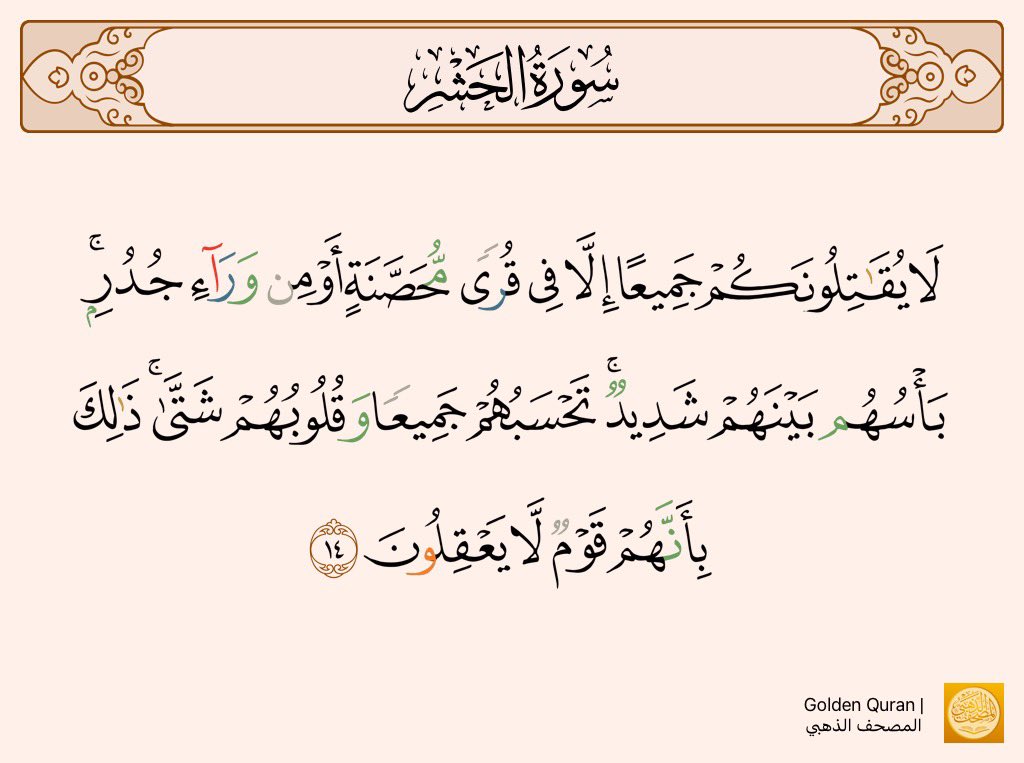 سُورَةُ الحَشْرِ
لَا يُقَـٰتِلُونَكُمْ جَمِيعًا إِلَّا فِى قُرًى مُّحَصَّنَةٍ أَوْ مِن وَرَآءِ جُدُرِۭ ۚ
بَأْسُهُم بَيْنَهُمْ شَدِيدٌ ۚ تَحْسَبُهُمْ جَمِيعًا وَقُلُوبُهُمْ شَتَّىٰ ۚ ذَٰلِكَ
بِأَنَّهُمْ قَوْمٌ لَّا يَعْقِلُونَ ١٤
Golden Quran |
المصحف الذهبي